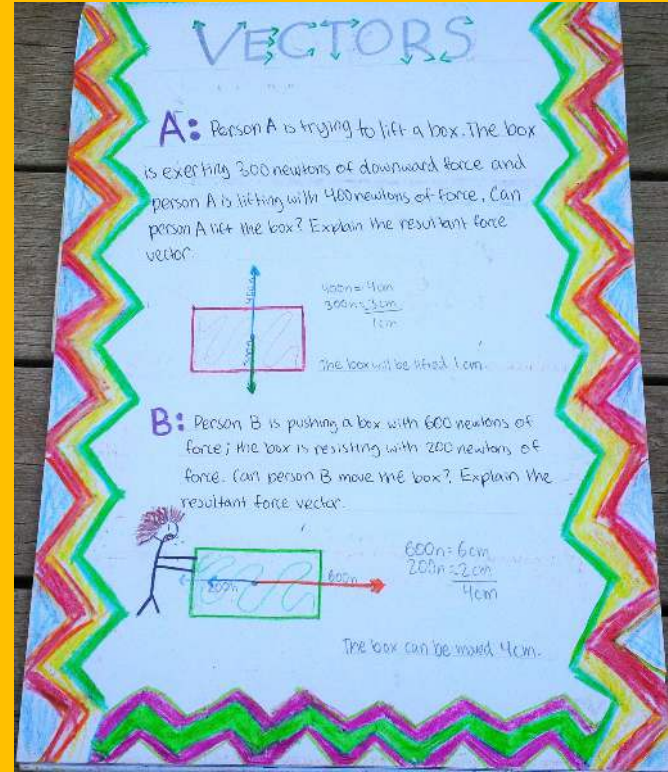 VECTORS
A: Person A is trying to lift a box. The box
is exerting 300 newtons of downward force and
person A is lifting with 400 newtons of force. Can
person A lift the box? Explain the resultant force
vector.
400n
300n
400n = 4cm
300n = 3cm
1cm
The box will be lifted 1cm.
B: Person B is pushing a box with 600 newtons of
force; the box is resisting with 200 newtons of
force. Can person B move the box? Explain the
resultant force vector.
200n
600n
600n = 6cm
200n = 2cm
4cm
The box can be moved 4cm.